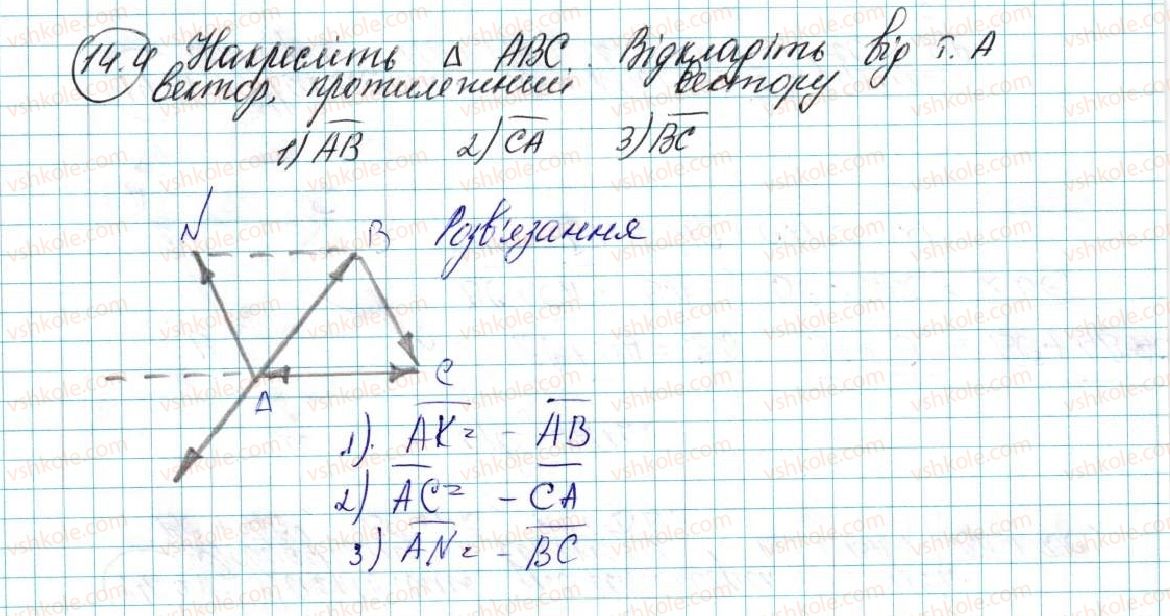 14.4 Накресліть Δ ABC. Відкладіть від т. A
вектор, протилежний вектору
1) AB 2) CA 3) BC
N B Розв'язання
C
A
1). AK = - AB
2) AC = - CA
3) AN = - BC
vshkole.com